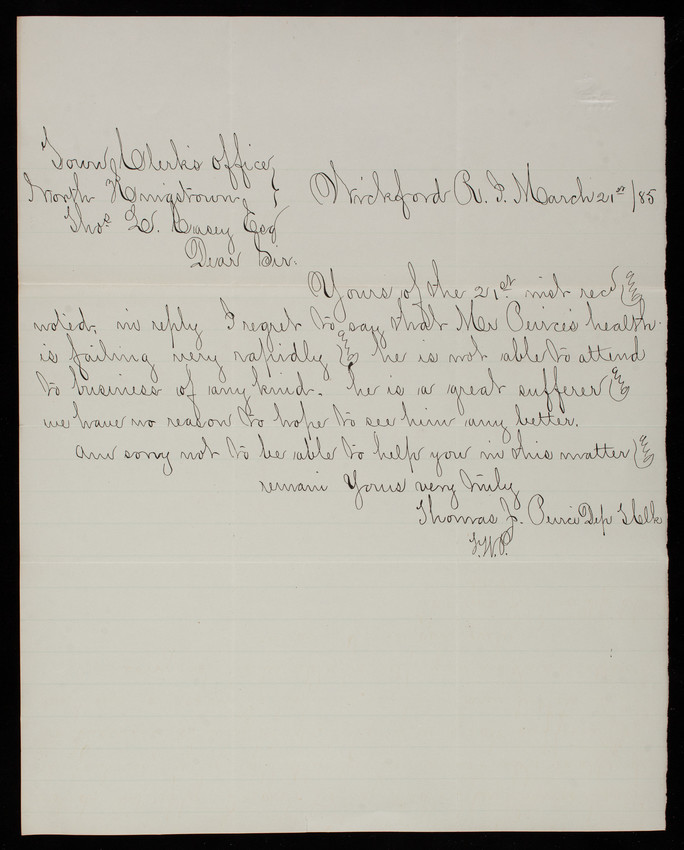 Town Clerk's office
North Kingstown Wickford R. I. March 21st /85
Thos L. Casey Esq
Dear Sir.
Yours of the 21st inst recd
noted. in reply I regret to say that Mr Peirce's health
is failing very rapidly he is not able to attend
to business of any kind. he is a great sufferer
we have no reason to hope to see him any better.
am sorry not to be able to help you in this matter
remain Yours very truly
Thomas J. Peirce Dep T Clk